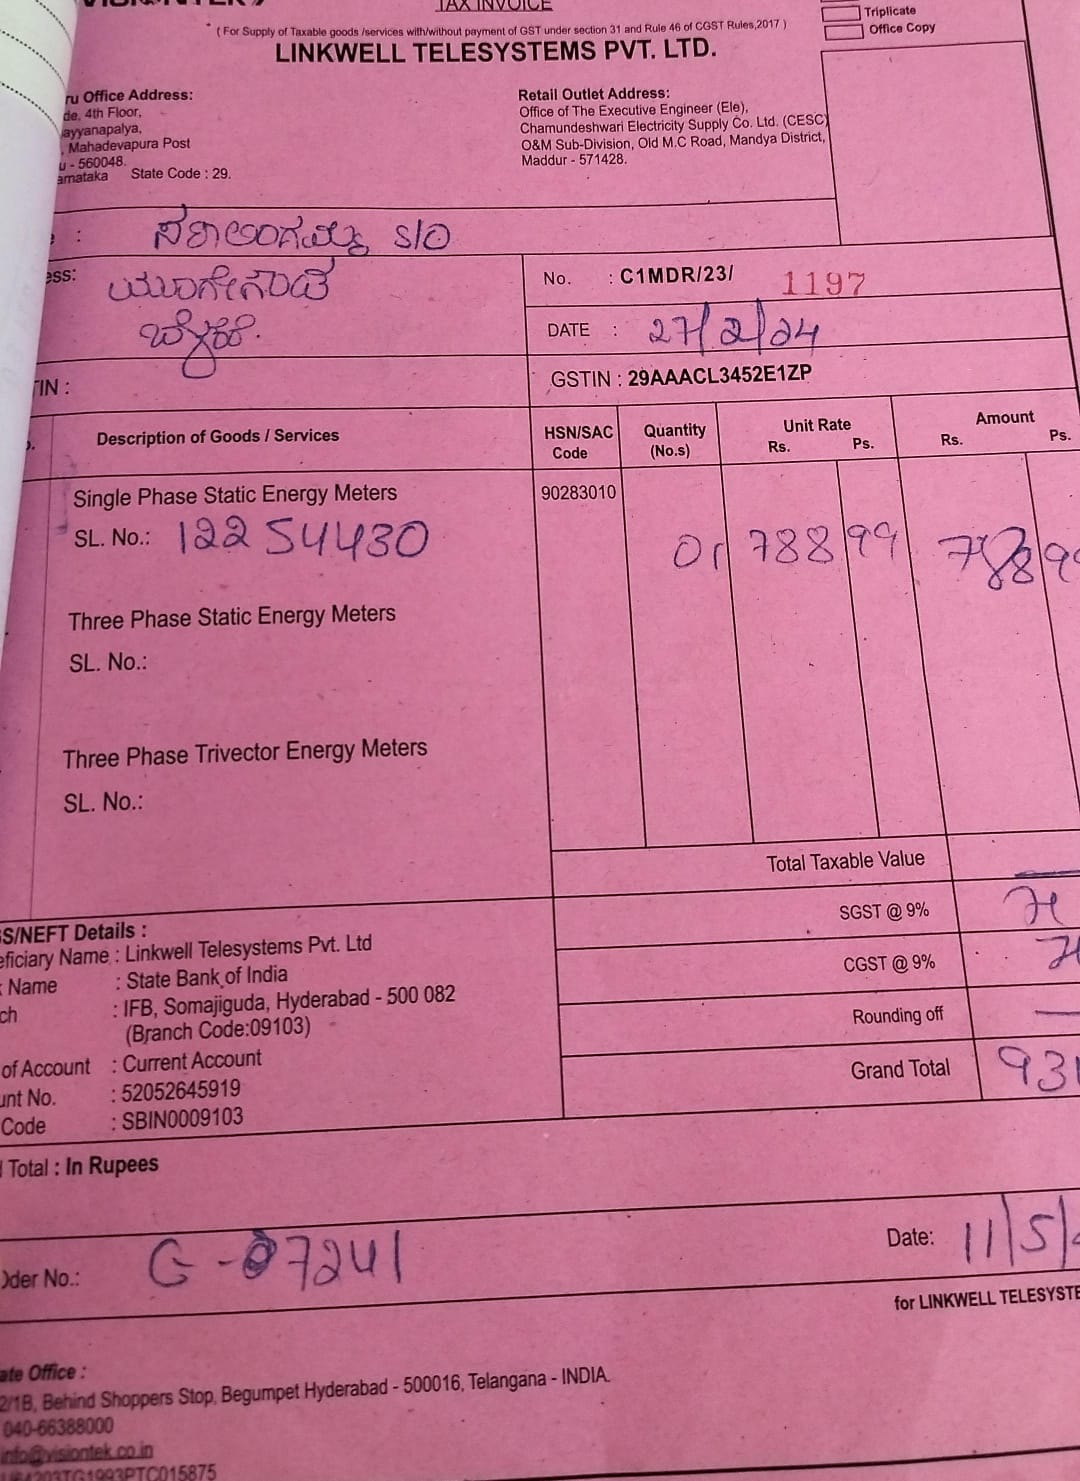 TAX INVOICE
( For Supply of Taxable goods /services with/without payment of GST under section 31 and Rule 46 of CGST Rules,2017 )
LINKWELL TELESYSTEMS PVT. LTD.
Triplicate
Office Copy
Office Address:
4th Floor,
Mahadevapura Post
- 560048.
State Code : 29.
Retail Outlet Address:
Office of The Executive Engineer (Ele),
Chamundeshwari Electricity Supply Co. Ltd. (CESC)
O&M Sub-Division, Old M.C Road, Mandya District,
Maddur - 571428.
S/O
No. : C1MDR/23/ 1197
DATE : 27/2/24
GSTIN : 29AAACL3452E1ZP
Description of Goods / Services HSN/SAC Code Quantity (No.s) Unit Rate Rs. Ps. Amount Rs. Ps.
Single Phase Static Energy Meters 90283010
SL. No.: 12254430 01 788 99 788
Three Phase Static Energy Meters
SL. No.:
Three Phase Trivector Energy Meters
SL. No.:
Total Taxable Value
SGST @ 9%
CGST @ 9%
Rounding off
Grand Total
S/NEFT Details :
Name : Linkwell Telesystems Pvt. Ltd
Name : State Bank of India
: IFB, Somajiguda, Hyderabad - 500 082
(Branch Code:09103)
of Account : Current Account
No. : 52052645919
Code : SBIN0009103
Total : In Rupees
No.: G-07241
Date: 11/5/
for LINKWELL
Office :
2/1B, Behind Shoppers Stop, Begumpet Hyderabad - 500016, Telangana - INDIA.
040-66388000
info@visiontek.co.in